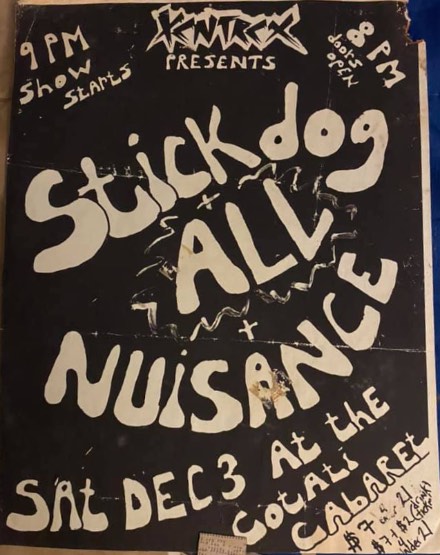 PRESENTS
9 PM
Show
Starts
8 PM
doors
open
Stick dog
+
ALL
+
NUiSANCE
SAt DEC 3 At the
Cotati
CABARET
$7
21